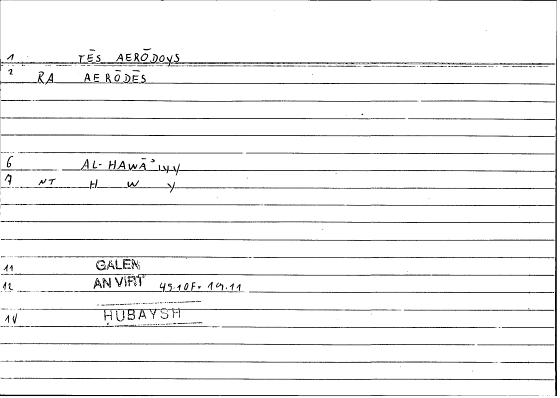 1 TĒS AERŌDOYS
2 RA AERŌDĒS
6 AL-HAWĀʾIYY
7 NT H W Y
11 GALEN
12 AN VIRT 45.10F. 14.11
14 HUBAYSH